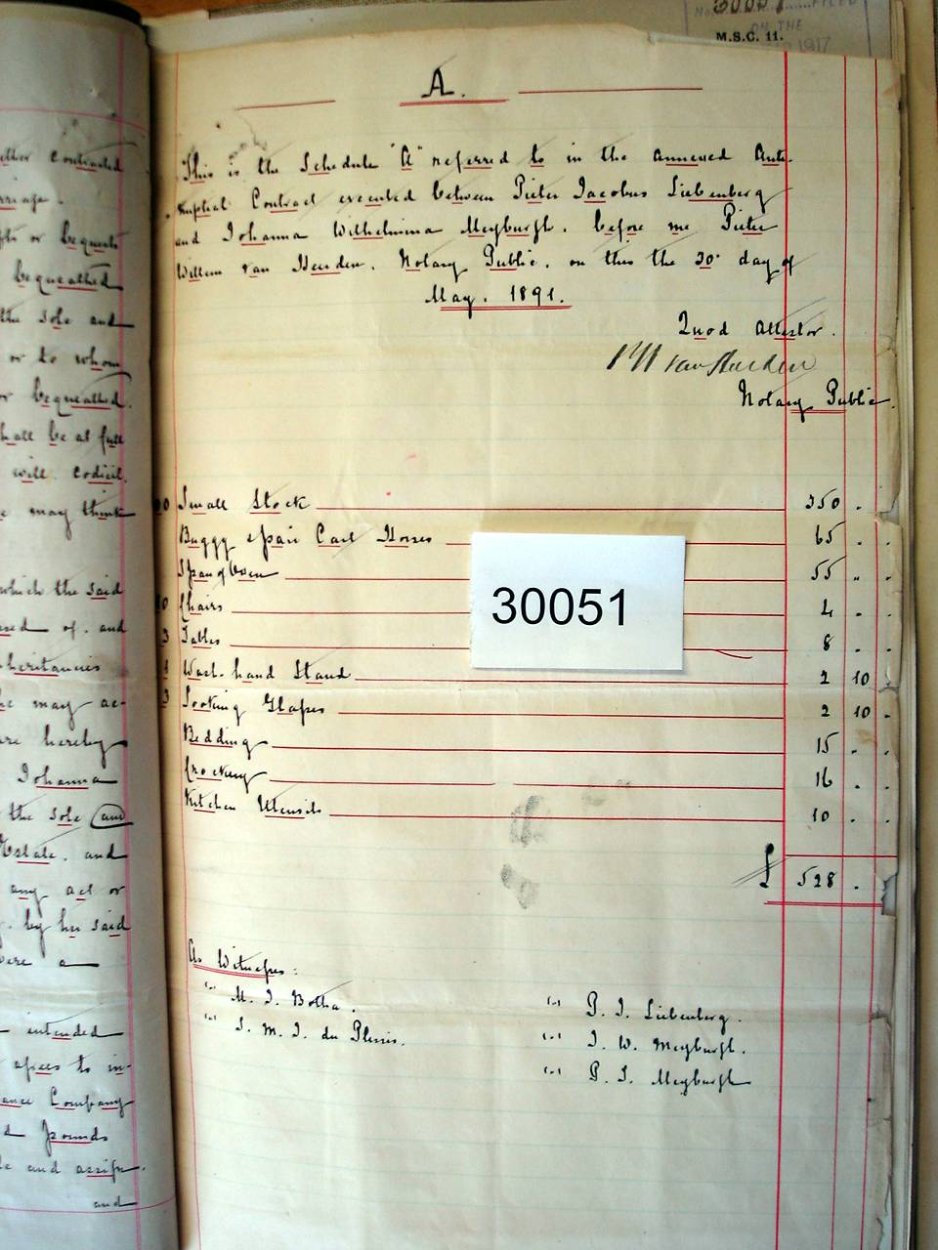 other contracted
rriage.
gift or bequests
bequeathed
the sole and
or to whom
or bequeathed.
shall be at full
will codicil
e may think
which the said
sed of. and
inheritances
he may ac-
are hereby
Johanna
the sole and
Estate. and
any act or
by her said
were a
intended
agrees to in-
ance Company
d pounds
le and assign.
and
30051
M.S.C. 11.
ON THE
1917
A.
This is the Schedule "A" referred to in the annexed Ante-
nuptial Contract executed between Pieter Jacobus Liebenberg
and Johanna Wilhelmina Meyburgh. before me Pieter
Willem van Heerden. Notary Public. on this the 30 day of
May. 1891.
Quod Attestor.
PW van Heerden
Notary Public.
Small Stock 350 . .
Buggy & pair Cart Horses 65 . .
Span of Oxen 55 " .
10 Chairs 4 . .
3 Tables 8 . .
1 Wash-hand Stand 2 10 .
3 Looking Glasses 2 10 .
Bedding 15 . .
Crockery 16 . .
Kitchen Utensils 10 . .
30051
£ 528 . .
As Witnesses:
M. J. Botha.
J. M. J. du Plessis.
P. J. Liebenberg.
J. W. Meyburgh.
P. J. Meyburgh